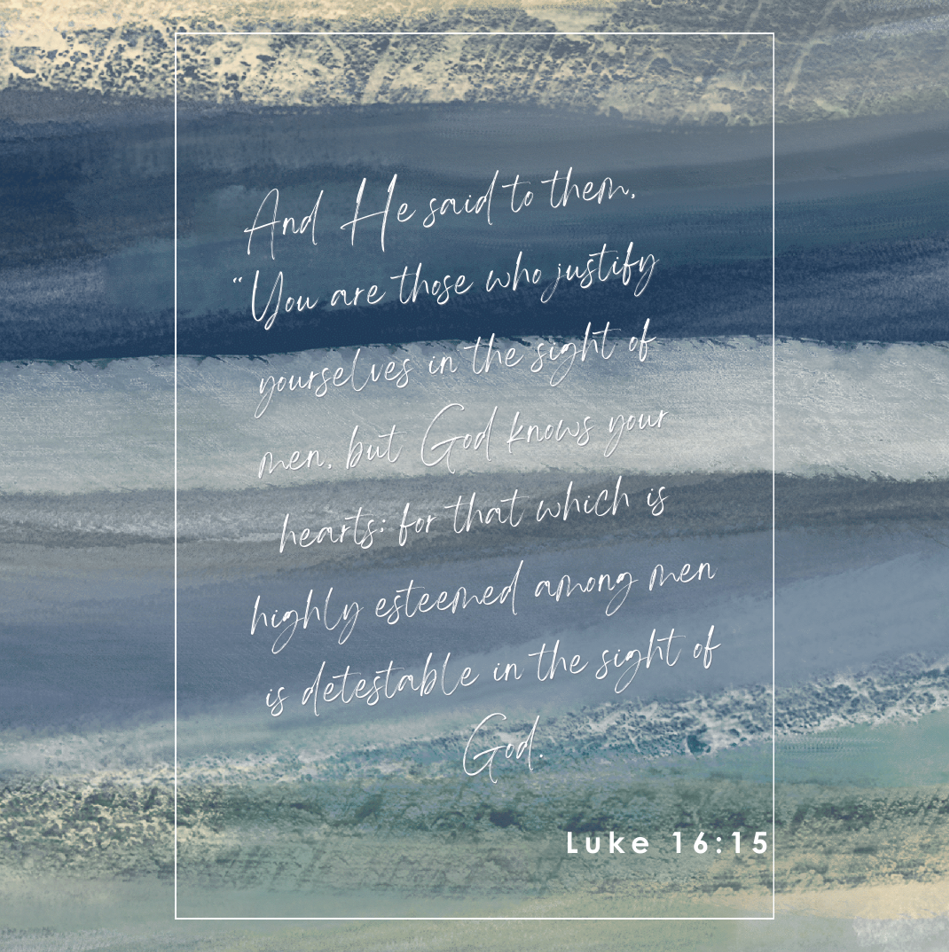 And He said to them,
“You are those who justify
yourselves in the sight of
men, but God knows your
hearts; for that which is
highly esteemed among men
is detestable in the sight of
God.
Luke 16:15